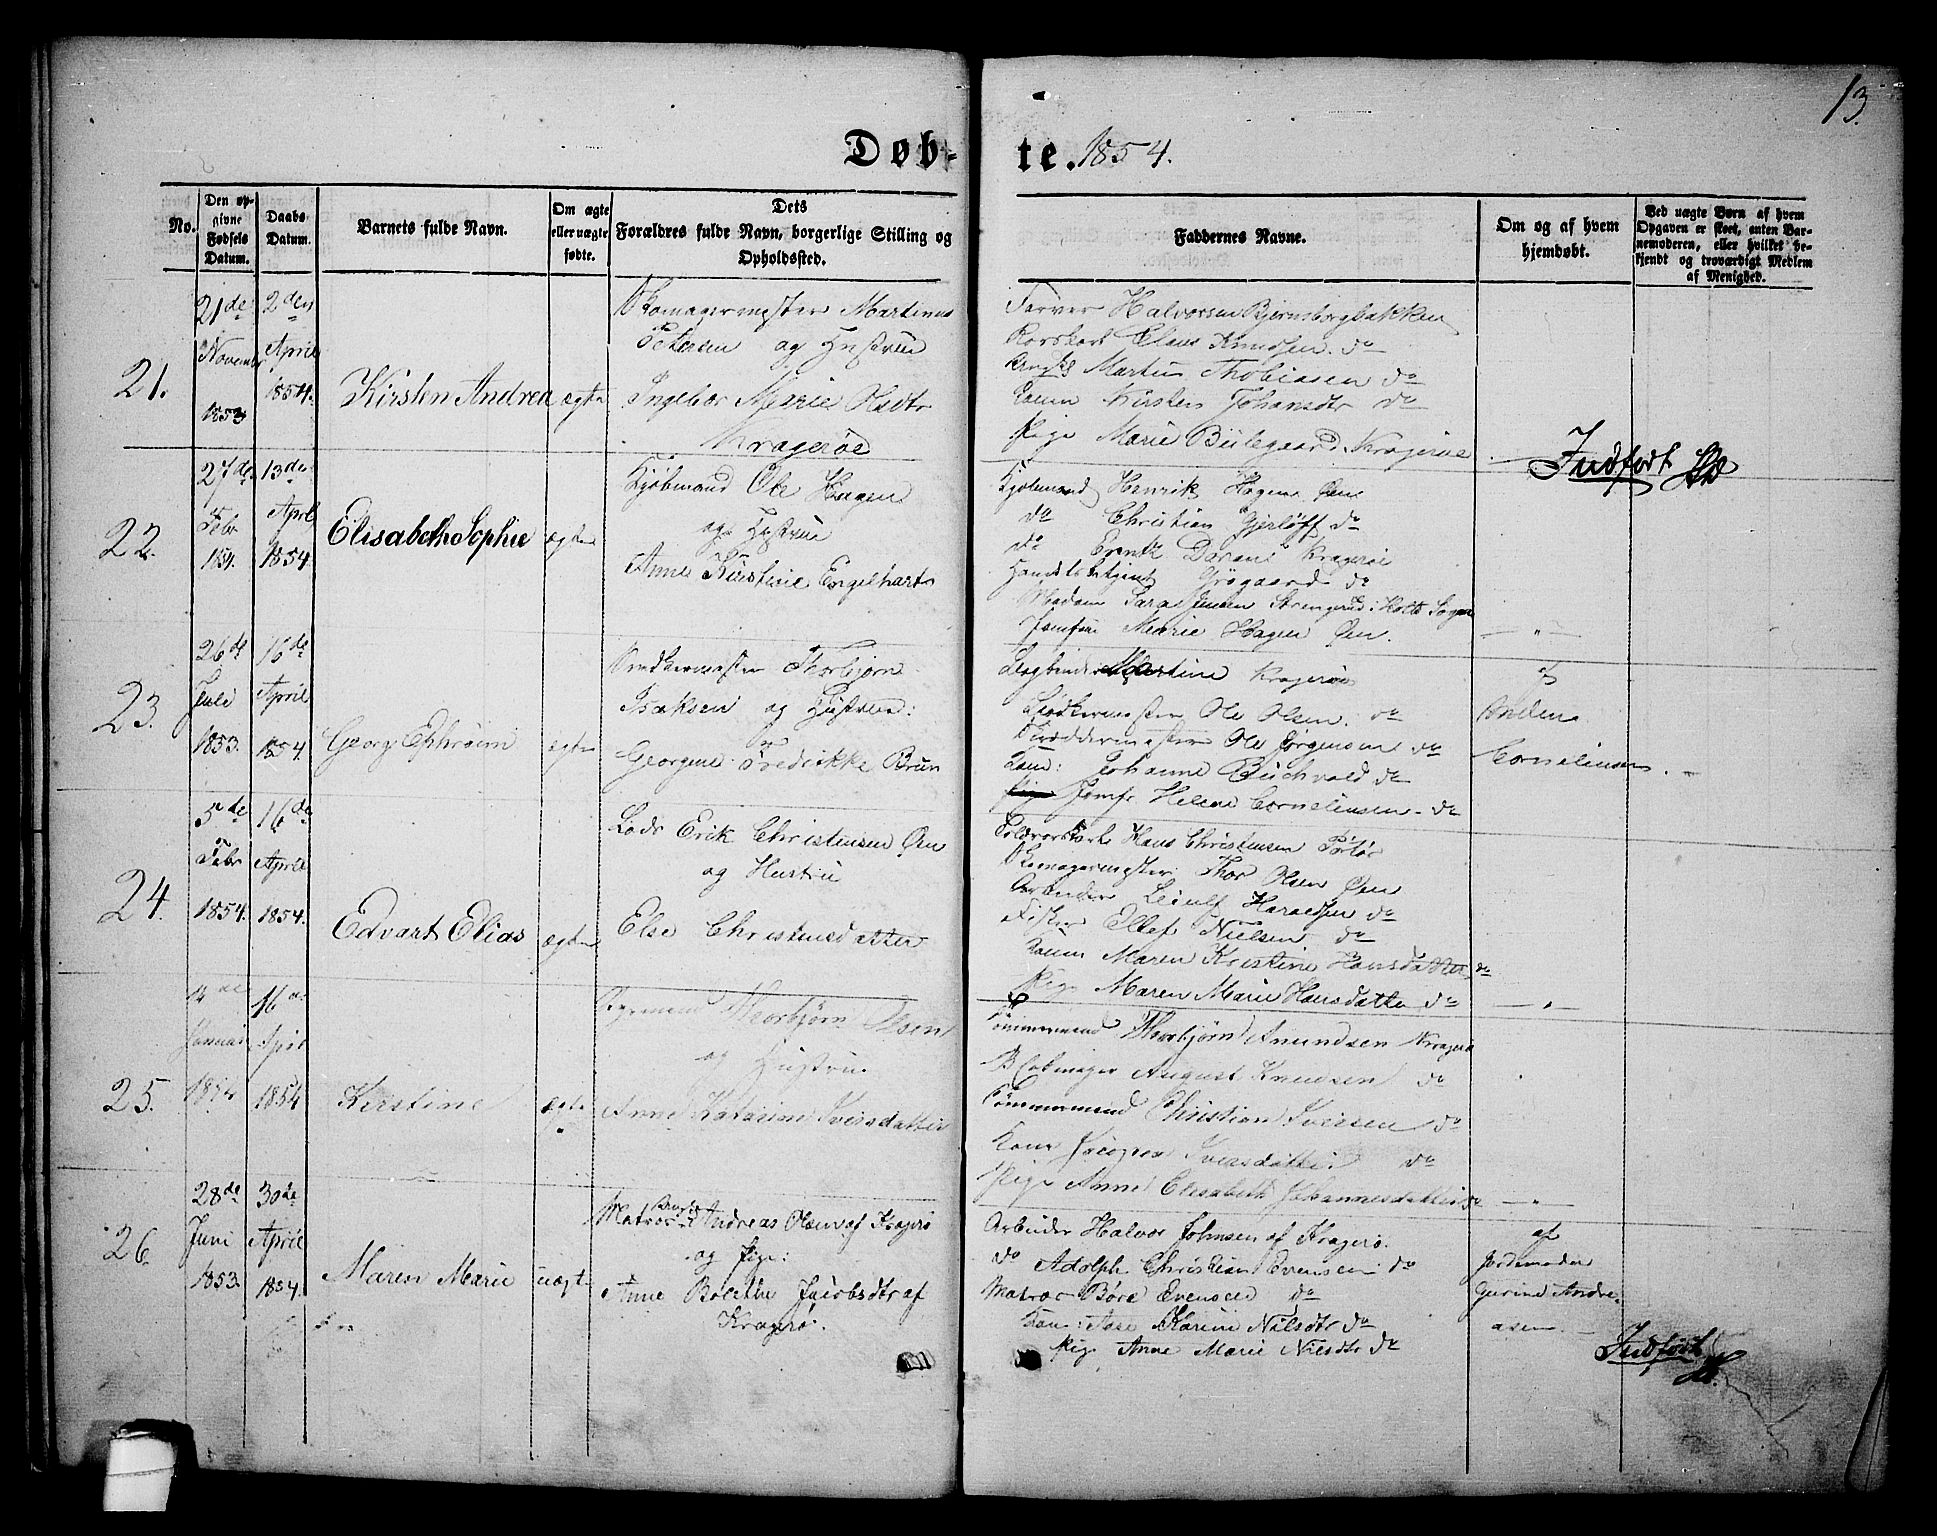 13.
Døb-te. 1854.
No.
Den op-
givne
Fødsels
Datum.
Daabs-
Datum.
Barnets fulde Navn.
Om ægte
eller uægte
fødte.
Dets
Forældres fulde Navn, borgerlige Stilling og
Opholdssted.
Faddernes Navne.
Om og af hvem
hjemdøbt.
Ved uægte Børn af hvem
Opgaven er skeet, enten Bar-
nemoderen, eller hvilket be-
kjendt og troværdigt Medlem
af Menighed.
21.
21de
November
1853
2den
April
1854.
Kirsten Andrea
ægte
Skomagermester Martinus
Petersen og Hustrue
Ingebor Marie Olsdtr
Kragerøe
Farver Halvorsen Bjørnsborgbakken
Claus Knudsen. do
Martin Thobiasen do
Kirsten Johansdtr do
Pige Marie Kragerøe
Indført
22.
27de
Febr
1854.
13de
April
1854.
Elisabeth Sophie
ægte
Kjøbmand Ole Hagen
og Hustrue
Anne Kirstine Engelhart
Kjøbmand Henrik Hagen Øen
do Christian Gjerløff do
do Kragerøe
do
Madam Sara Jensen i Holts Sogn
Jomfrue Marie Hagen Øen.
23.
26de
Juli
1853.
16de
April
1854.
Georg Ephraim
ægte
Snedkermester Thorbjørn
Isaksen og Hustrue:
Georgine Fredrikke Brun
Martine Kragerøe
Ole Olsen. do
Ole Jørgensen do
Johanne Buchvald do
Jomfr Helene Cornelinsen - do
af
Cornelinsen.
24.
5de
Febr
1854.
16de
April
1854.
Edvart Elias
ægte
Lods Erik Christensen Øen
og Hustru
Else Christensdatter
Hans Christensen Portør
Skomagermester Thor Olsen Øen
Arbeider Leiulf Haraldsen do
Fisker Ellef Nielsen do
Maren Kristine Hansdatter do
Pige Maren Marie Hansdatter do
25.
Januar
16de
April
1854
Kirstine
ægte
Thorbjørn Olsen
og Hustrue
Anne Katarine Iversdatter
Tømmermand Thorbjørn Amundsen Kragerø
August Knudsen do
Tømmermand Christian Iversen do
Kone Iversdatter do
Pige Anne Elisabeth Johannesdatter do
26.
28de
Juni
1853.
30de
April
1854.
Maren Marie
uægte
Matros Andreas Olsen af Kragerø
og Pige:
Anne Bolethe Jacobsdtr af
Kragerø.
Arbeider Halvor Johnsen af Kragerø.
do Adolph Christian Evensen do
Matros Børe Evensen do
Kone Aase Karine Nilsdtr do
Pige Anne Marie Nilsdtr do
af
Jordemoder
Gurine Andre-
asen
Indført